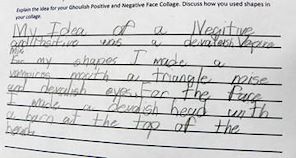 Explain the idea for your Ghoulish Positive and Negative Face Collage. Discuss how you used shapes in
your collage.
My Idea of a Negitive
and Positive was a devalish Vapire
mix
For my shapes I made a
vampires mouth a triangle noise
and devalish eyes. For the face
I made a devalish head with
a horn at the top of the
head.